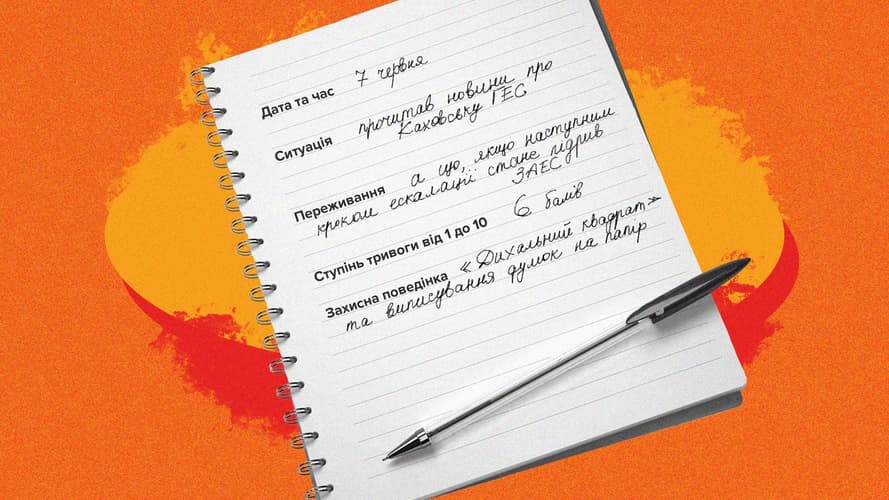 Дата та час 7 червня
Ситуація прочитав новини про
Каховську ГЕС
Переживання а що, якщо наступним
кроком ескалації стане підрив
ЗАЕС
Ступінь тривоги від 1 до 10 6 балів
Захисна поведінка «Дихальний квадрат»
та виписування думок на папір